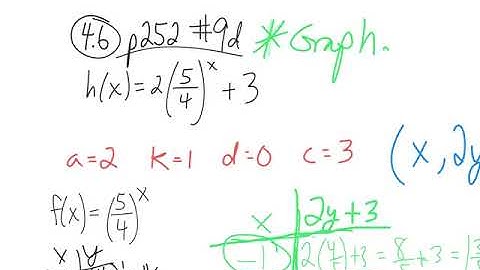 4.6 p252 #9d *Graph.
h(x) = 2(5/4)^x + 3
a=2 k=1 d=0 c=3 (x, 2y
f(x) = (5/4)^x
x | 2y+3
x | y
-1 | 2(4/5)+3 = 8/5+3 =